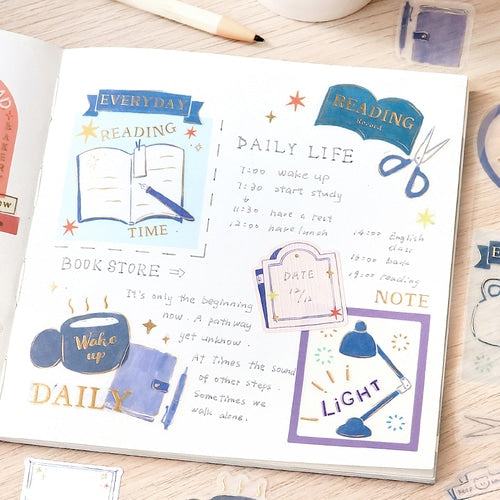 EVERYDAY
READING
TIME
READING
Record
DAILY LIFE
7:00 wake up
7:30 start study
11:30 have a rest
12:00 have lunch
14:00 English
class
19:00 reading
BOOK STORE ⇒
It's only the beginning
now. A pathway
yet unknow.
At times the sound
of other steps.
Sometimes we
walk alone.
DATE
12/12
Wake
up
DAILY
NOTE
LiGHT